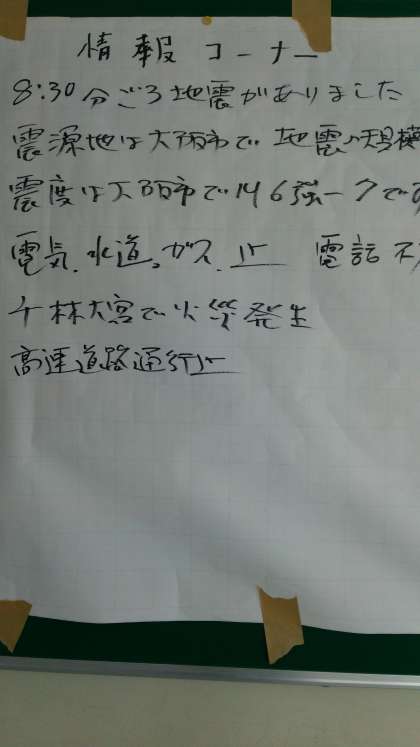 情報コーナー
8:30分ごろ地震がありました
震源地は大阪市で 地震の規模
震度は大阪市では6強ー7で
電気.水道.ガス.止 電話不
千林大宮で火災発生
高速道路通行止